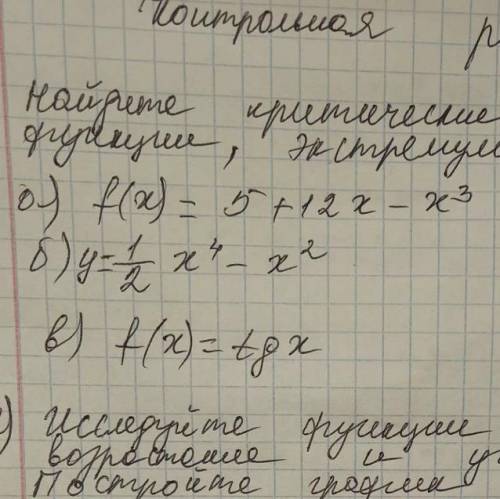 Контрольная р
Найдите критические
функции, экстремум
а) f(x) = 5 + 12x − x³
б) y = 1/2 x⁴ − x²
в) f(x) = tg x
Исследуйте функции
возрастание и у
Постройте график